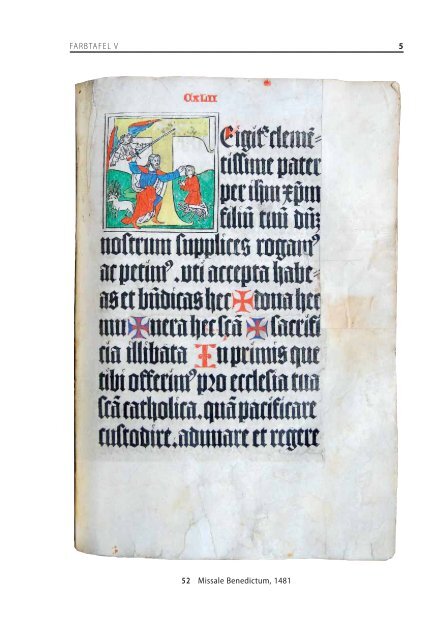 FARBTAFEL V 5
CXLII
TEigit᷑ clemē=
tissime pater
per ihm̄ xp̄m
filiū tuū dn̄ꝫ
nostrum supplices rogamꝰ
ac petimꝰ. vti accepta habe=
as et bn̄dicas hec ✠ dona hec
mu ✠ nera hec scā ✠ sacrifi
cia illibata In primis que
tibi offerimꝰ pro ecclesia tua
scā catholica. quā pacificare
custodire. adunare et regere
52 Missale Benedictum, 1481